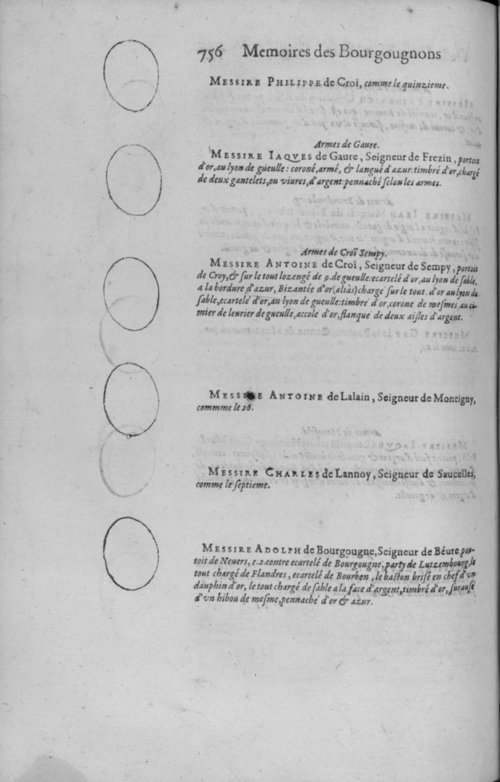 756 Memoires des Bourgougnons
MESSIRE PHILIPPE de Croï, comme le quinzieme.
Armes de Gaure.
MESSIRE IAQVES de Gaure, Seigneur de Frezin, portoit
d'or, au lyon de gueulle: coroné, armé, & langué d'azur: timbré d'or, chargé
de deux gantelets, ou viures, d'argent: pennaché selon les armes.
Armes de Croï Sempy.
MESSIRE ANTOINE de Croï, Seigneur de Sempy, portoit
de Croy, & sur le tout lozengé de 9. de gueulle: ecartelé d'or, au lyon de sable,
a la bordure d'azur, Bizantée d'or (aliàs) chargé sur le tout. d'or au lyon de
sable, ecartelé d'or, au lyon de gueulle: timbré d'or, coroné de mesmes, au ci-
mier de leurier de gueulle, accolé d'or, flanqué de deux aisles d'argent.
MESSIRE ANTOINE de Lalain, Seigneur de Montigny,
commme le 26.
MESSIRE CHARLES de Lannoy, Seigneur de Saucelles,
comme le septieme.
MESSIRE ADOLPH de Bourgougne, Seigneur de Béure, por-
toit de Neuers, 1.2. contre ecartelé de Bourgougne, party de Lutzembourg, le
tout chargé de Flandres, ecartelé de Bourbon, le baston brisé en chef d'vn
dauphin d'or, le tout chargé de sable a la face d'argent, timbré d'or,
d'vn hibou de mesme, pennaché d'or & azur.